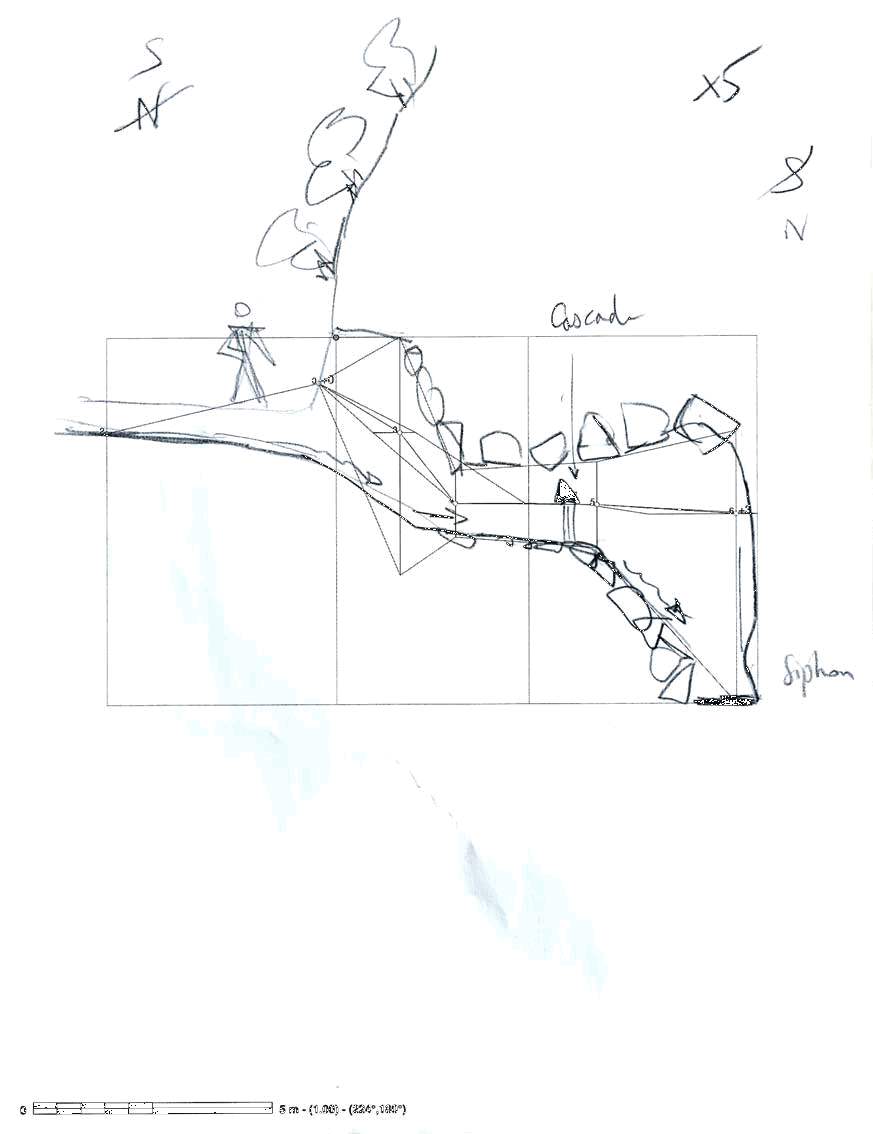 S
N
x5
S
N
Cascade
Siphon
0 5 m - (1.00) - (224°,180°)